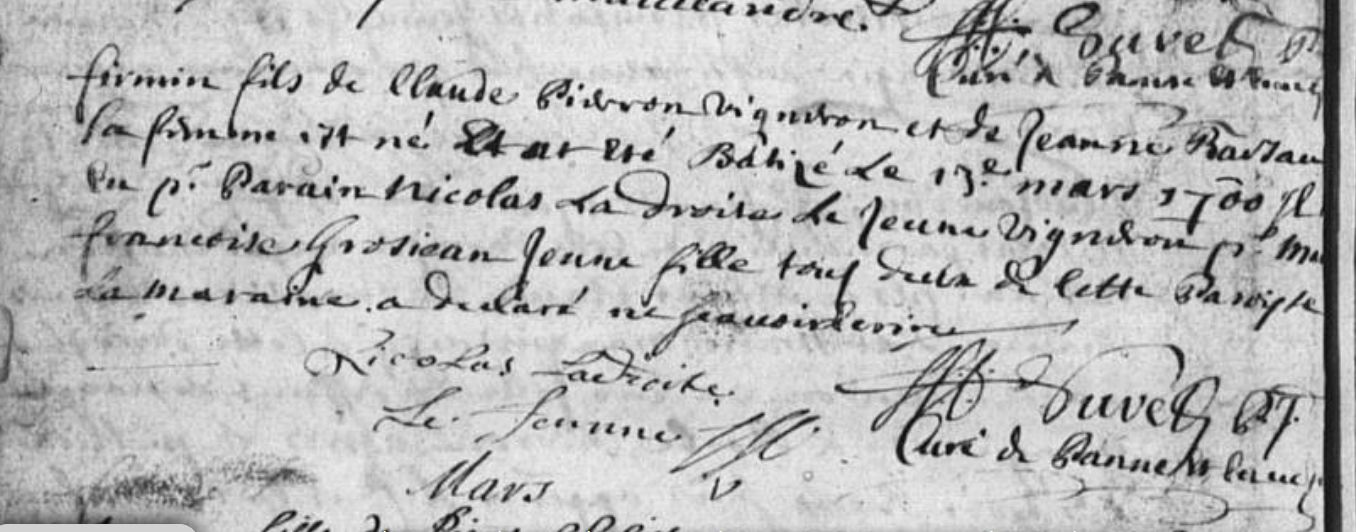 Duvet
Curé de Panne et
firmin fils de Claude Pierron vigneron et de Jeanne
sa femme est né Et at Eté Batizé Le 13.e mars 1700 Il
Eu pr. Parain Nicolas La droite Le Jeune vigneron pr. Ma
francoise Grosjean Jeune fille tous deux de Cette Paroisse
La maraine a declaré ne scauoir Ecrire
Nicolas Ladroite
Le Jeunne
Duvet
Curé de Panne et
Mars
fille de